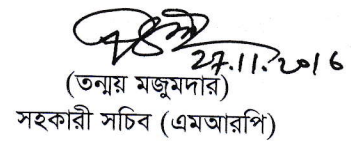 27.11.2016
(তন্ময় মজুমদার)
সহকারী সচিব (এমআরপি)